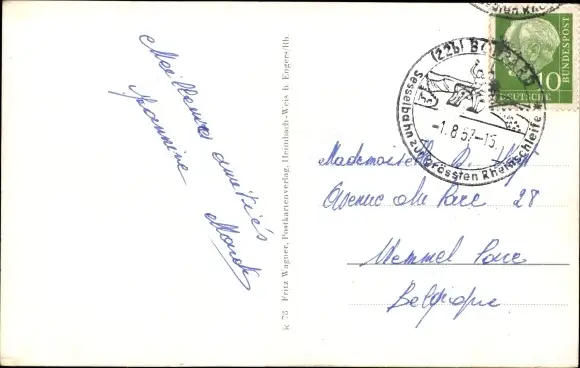 Meilleures amitiés
Jeannine
k 78 Fritz Wagner, Postkartenverlag, Heimbach-Weis b. Engers/Rh.
(22b) BOPPARD
Sesselbahn zur grössten Rheinschleife
-1.8.57-15
10
DEUTSCHE
BUNDESPOST
Mademoiselle D.
Avenue du Parc 28
Wemmel
Belgique